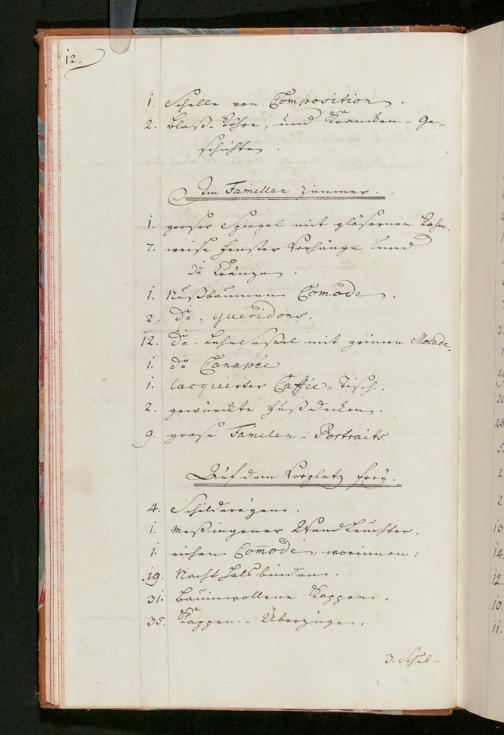 12.
1. Schelle von Composition.
2. Blaß-Röhre, und Krancken-Ge-
schichten.
Im Famillen Zimmer.
1. großer Spiegel mit gläsernen Rahm.
7. weise Fenster Vorhänge und
do Kränzen.
1. Nußbaumene Comode.
2. do. queridons.
12. do. Lehnseßel mit grünen Mocade.
1. do Canapée
1. lacquirter Caffée-Tisch.
2. gewürckte Fußdecken.
9. grose Famillen-Portraits.
Auf dem Vorplatz frey.
4. Schildereyen.
1. Meßingener Wandleuchter.
1. eichene Comode, worinnen:
19. Nacht Halsbinden.
31. Baumwollene Kappen.
35. Kappen-Überzüge.
3. Schub-